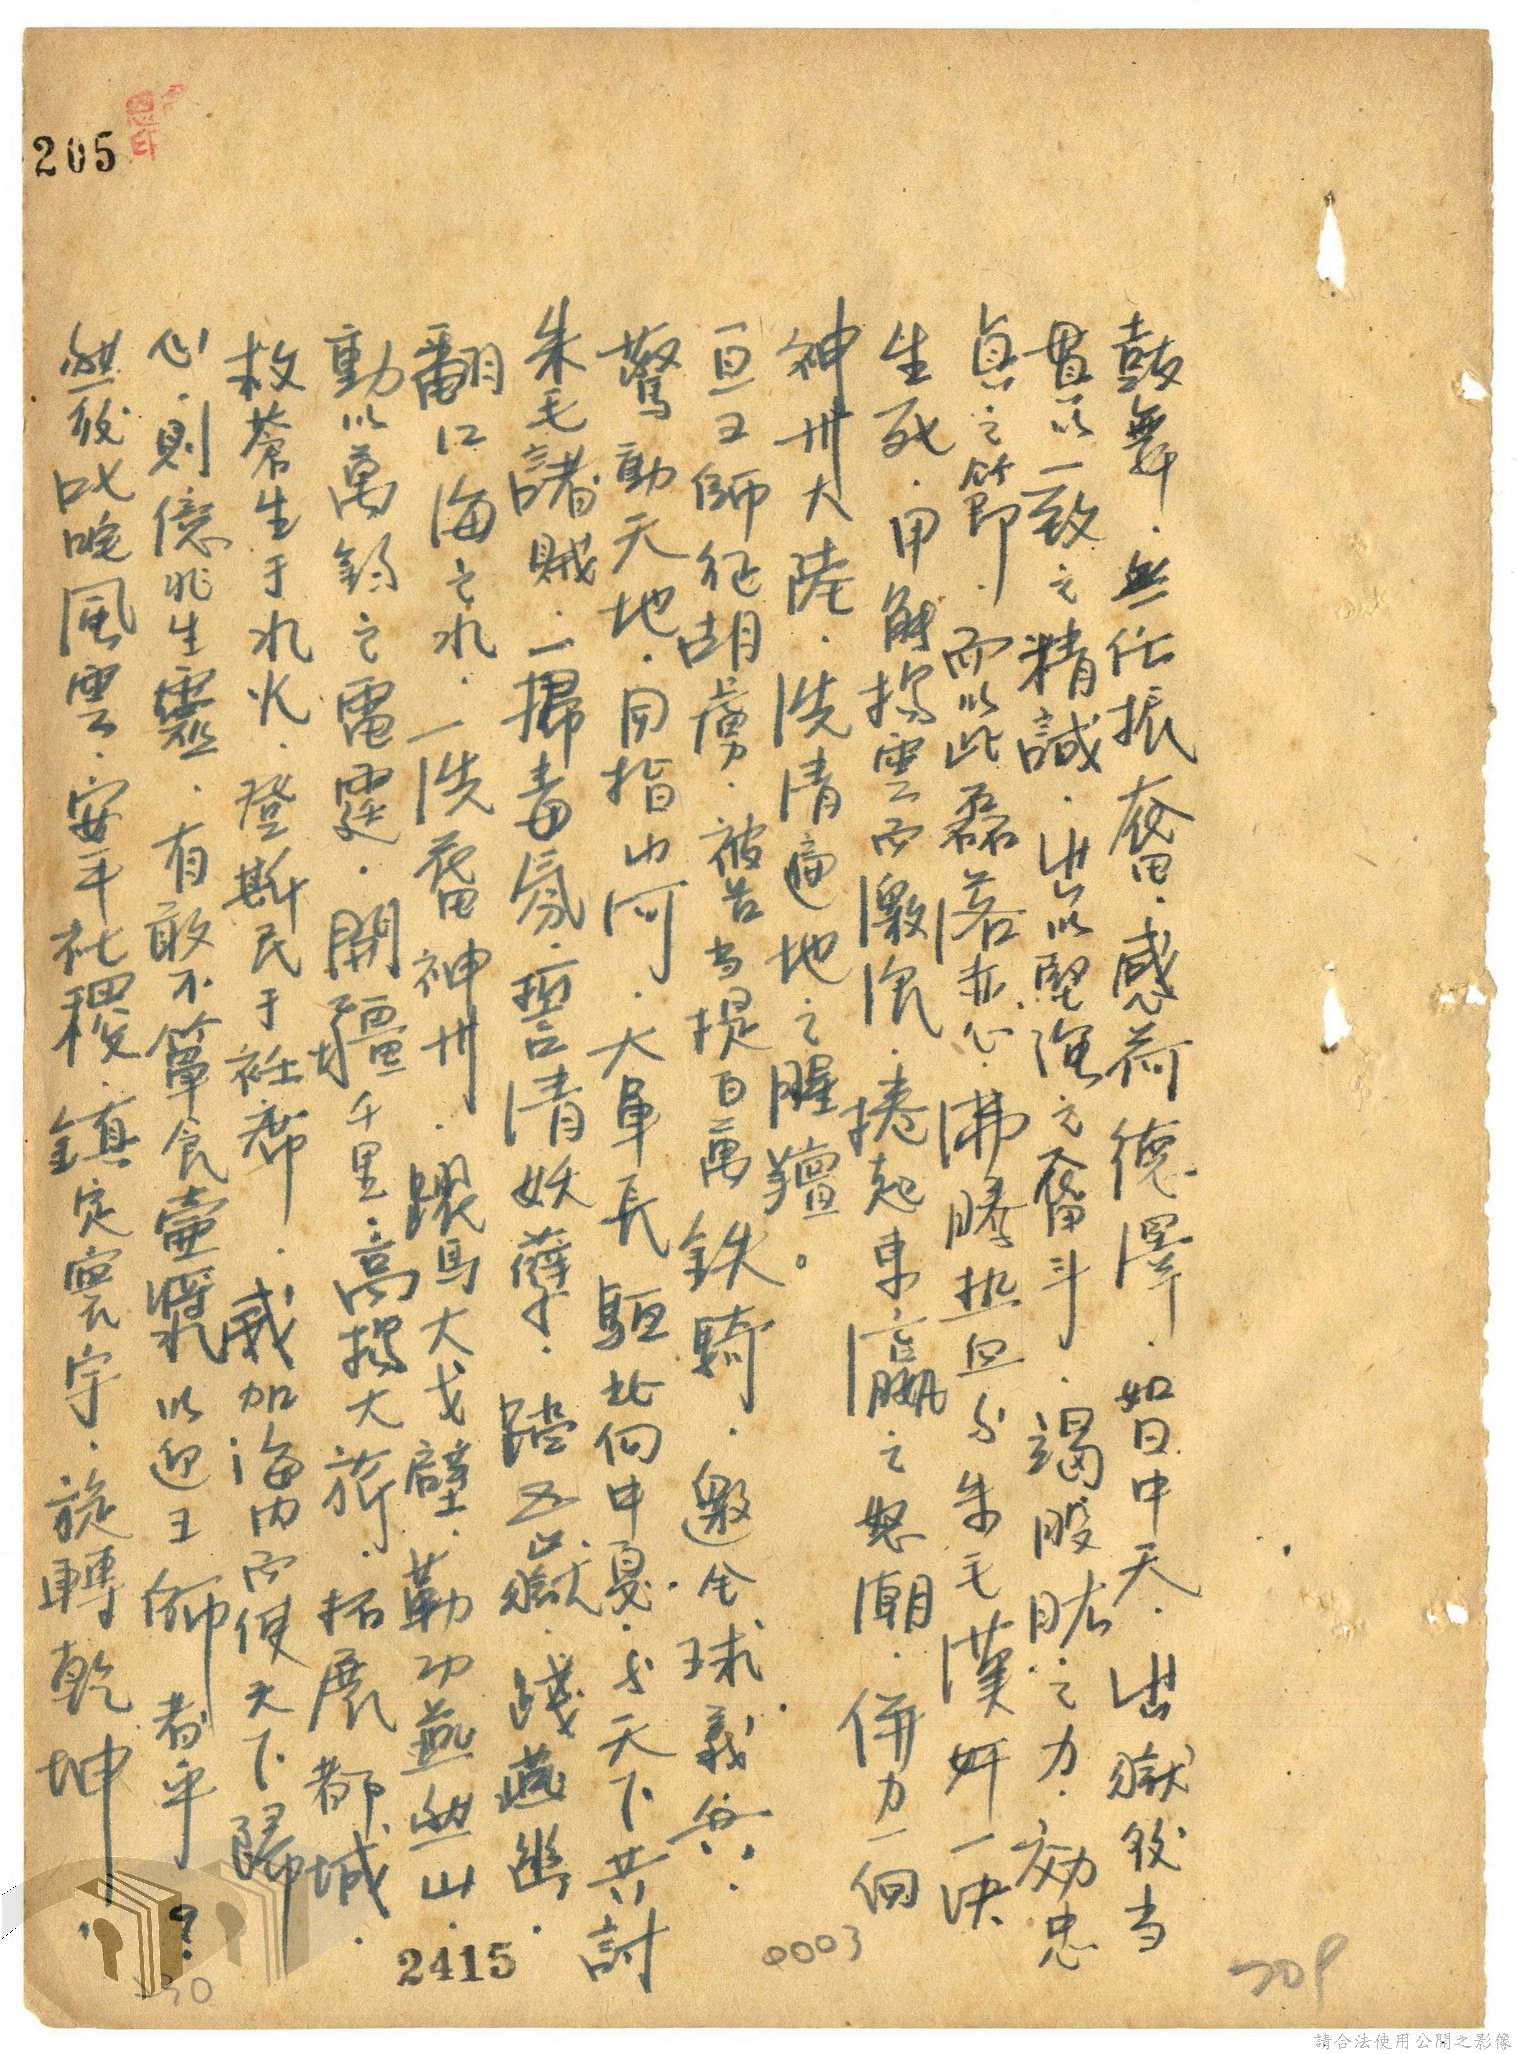 鼓舞．無任振奮．感荷德澤．如日中天．出獄後当
貫以一致之精誠．出以堅强之奮斗．竭股肱之力．効忠
貞之節．而以此磊落赤心．沸腾热血与朱毛漢奸一决
生死．甲解揚雲而激浪．捲起東瀛之怒潮．併力一個
神州大陸．洗清遍地之腥羶。
一旦王師征胡虜．被告当提百萬鉄騎．邀全球義兵．
驚動天地．回指山河．大軍長驅北伺中戛．与天下共討
朱毛諸賊．一掃毒氛．誓清妖孽．踏五嶽．踐燕幽．
翻江海之水．一洗舊神州．躍馬大戈壁．勒功燕然山．
動以萬鈞之電霆．開疆千里．高揚大旂．拓展都城．
救蒼生于水火．登斯民于衽席．威加海内而使天下歸
心．則億兆生靈．有敢不簞食壺漿以迎王師者乎？
然後叱咤風雲．安平社稷．鎮定寰宇．旋轉乾坤．
205
2415
0003
209
230
請合法使用公開之影像